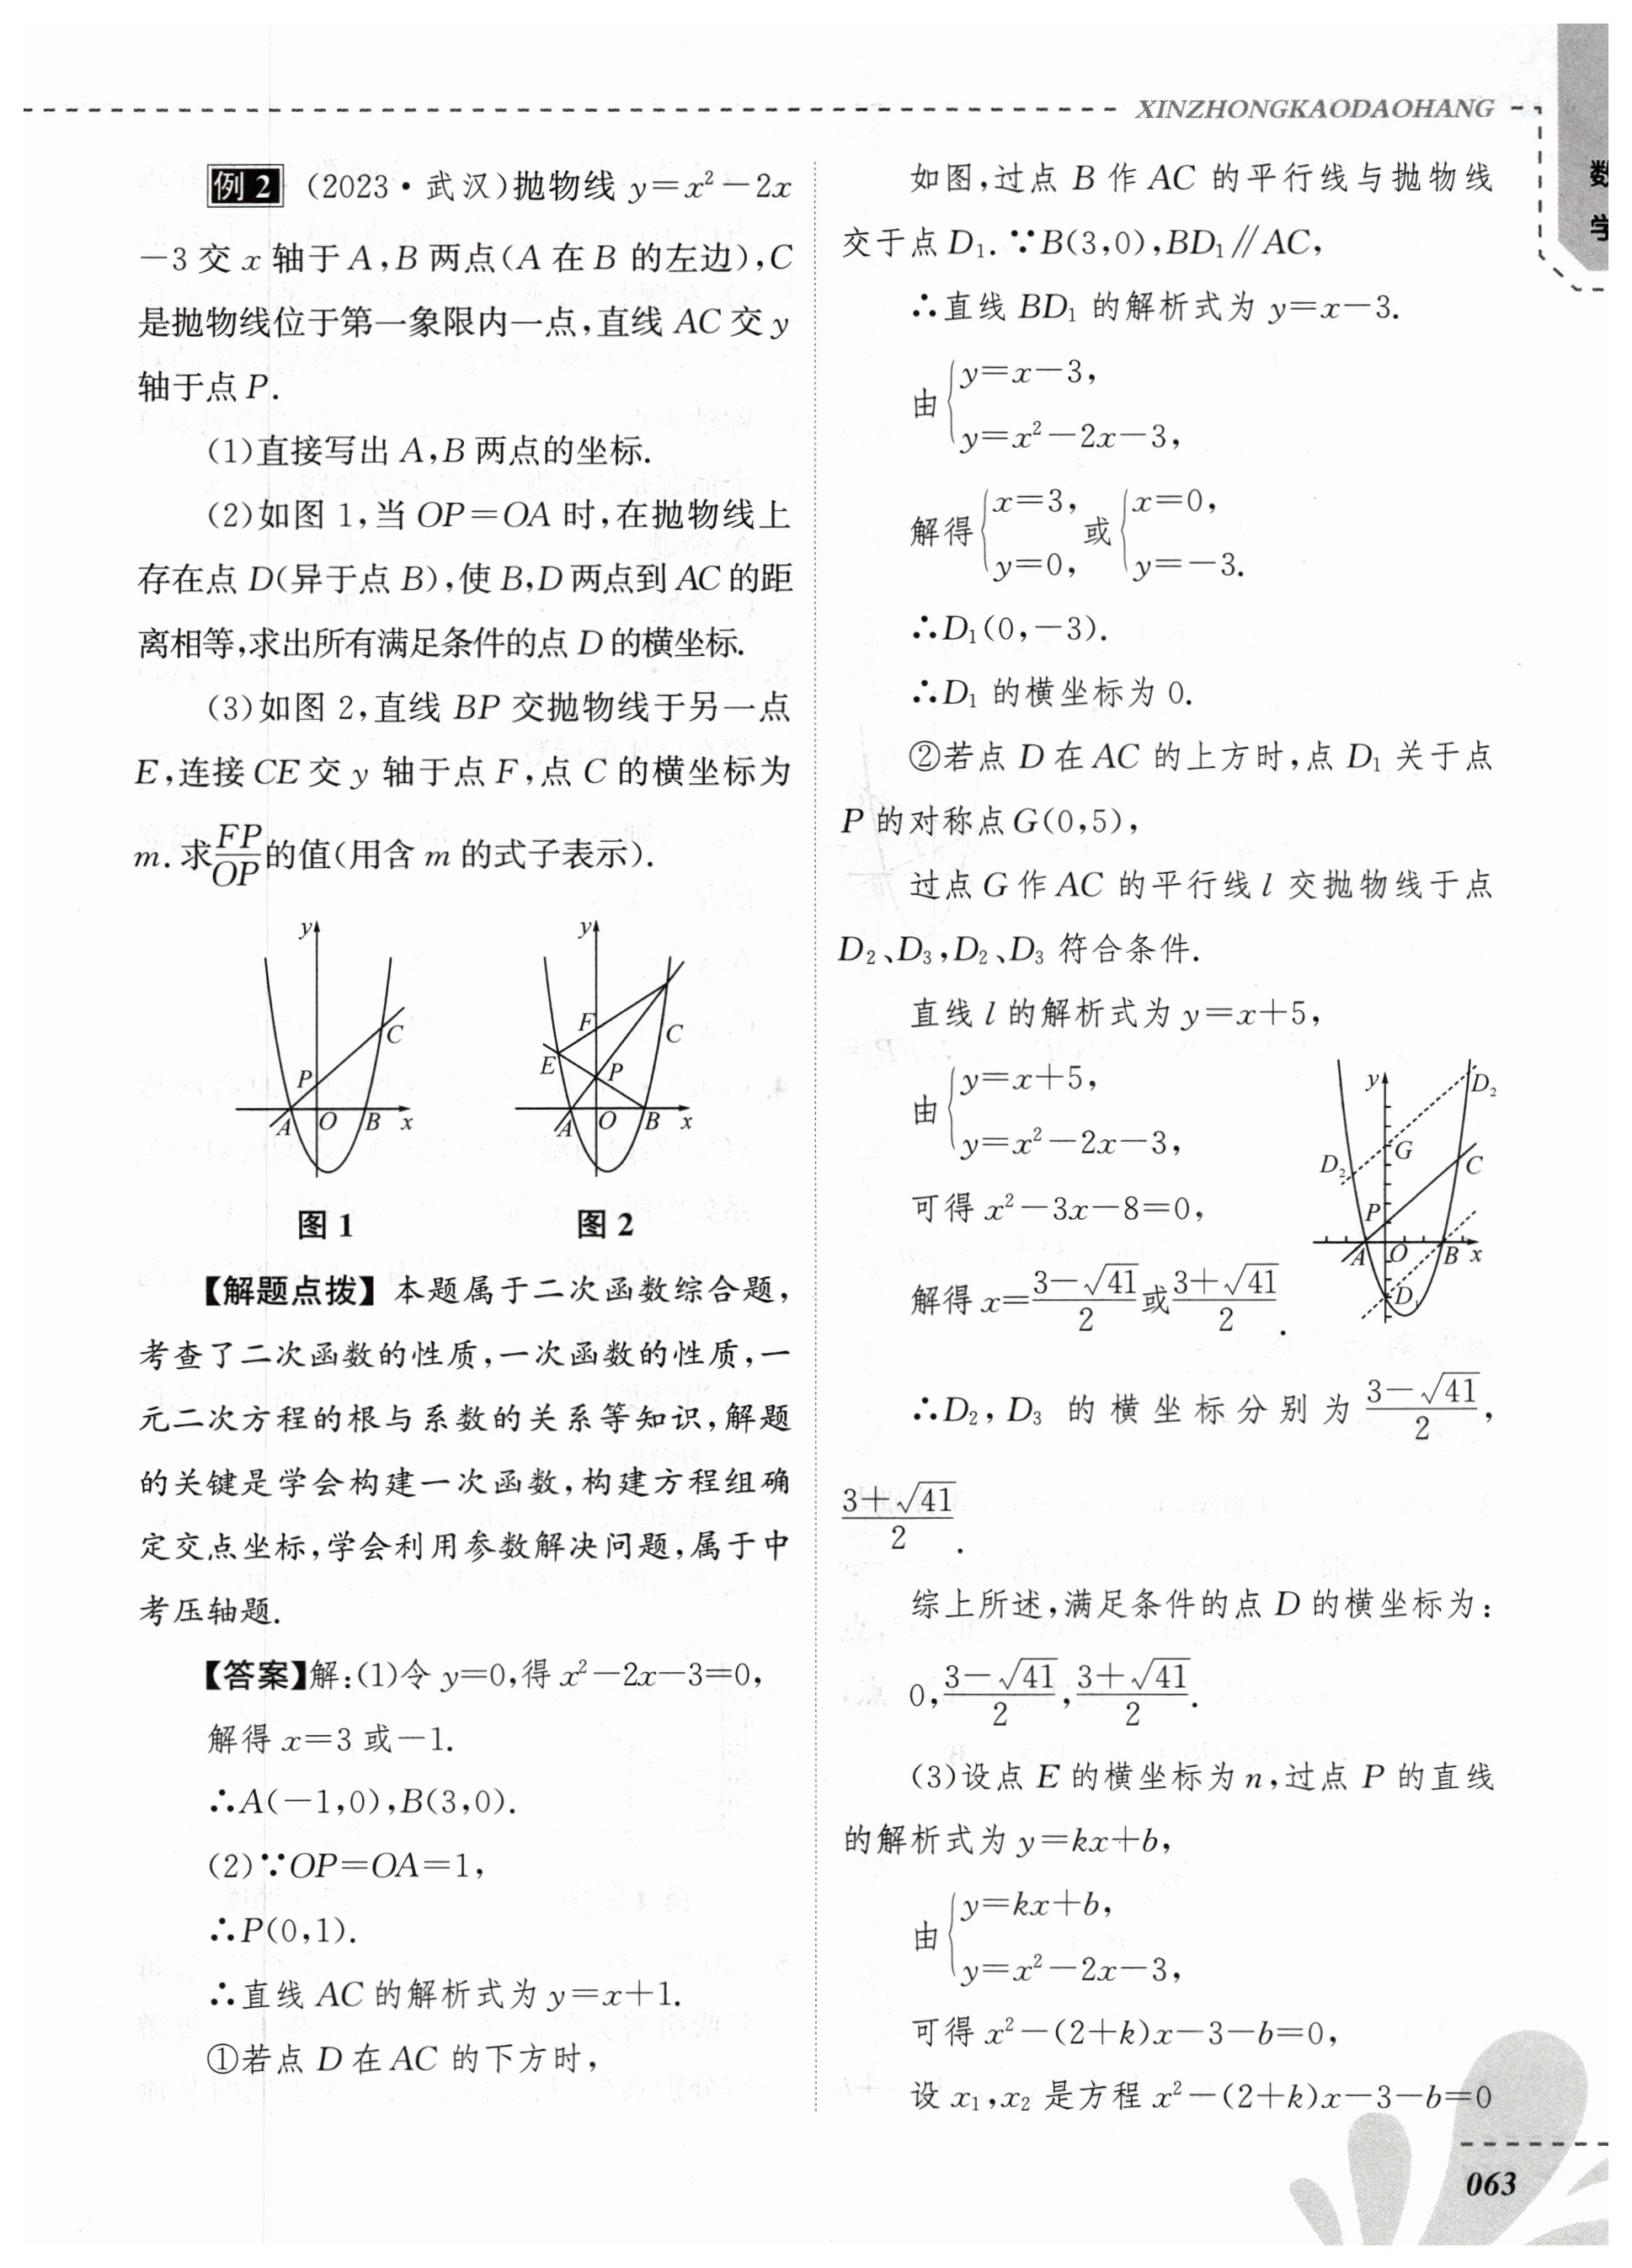 XINZHONGKAODAOHANG
数
学
例2 (2023·武汉)抛物线 y=x²-2x
-3 交 x 轴于 A,B 两点(A 在 B 的左边),C
是抛物线位于第一象限内一点,直线 AC 交 y
轴于点 P.
(1)直接写出 A,B 两点的坐标.
(2)如图 1,当 OP=OA 时,在抛物线上
存在点 D(异于点 B),使 B,D 两点到 AC 的距
离相等,求出所有满足条件的点 D 的横坐标.
(3)如图 2,直线 BP 交抛物线于另一点
E,连接 CE 交 y 轴于点 F,点 C 的横坐标为
m. 求FP/OP的值(用含 m 的式子表示).
y
C
P
A O B x
图 1
y
F
C
E
P
A O B x
图 2
【解题点拨】本题属于二次函数综合题,
考查了二次函数的性质,一次函数的性质,一
元二次方程的根与系数的关系等知识,解题
的关键是学会构建一次函数,构建方程组确
定交点坐标,学会利用参数解决问题,属于中
考压轴题.
【答案】解:(1)令 y=0,得 x²-2x-3=0,
解得 x=3 或-1.
∴A(-1,0),B(3,0).
(2)∵OP=OA=1,
∴P(0,1).
∴直线 AC 的解析式为 y=x+1.
①若点 D 在 AC 的下方时,
如图,过点 B 作 AC 的平行线与抛物线
交于点 D₁. ∵B(3,0),BD₁∥AC,
∴直线 BD₁ 的解析式为 y=x-3.
由{y=x-3,
y=x²-2x-3,
解得{x=3, 或{x=0,
y=0, y=-3.
∴D₁(0,-3).
∴D₁ 的横坐标为 0.
②若点 D 在 AC 的上方时,点 D₁ 关于点
P 的对称点 G(0,5),
过点 G 作 AC 的平行线 l 交抛物线于点
D₂、D₃,D₂、D₃ 符合条件.
直线 l 的解析式为 y=x+5,
由{y=x+5,
y=x²-2x-3,
可得 x²-3x-8=0,
解得 x=(3-√41)/2或(3+√41)/2.
y
D₂
G
D₂
C
P
A O B x
D₁
∴D₂,D₃ 的横坐标分别为 (3-√41)/2,
(3+√41)/2.
综上所述,满足条件的点 D 的横坐标为:
0,(3-√41)/2,(3+√41)/2.
(3)设点 E 的横坐标为 n,过点 P 的直线
的解析式为 y=kx+b,
由{y=kx+b,
y=x²-2x-3,
可得 x²-(2+k)x-3-b=0,
设 x₁,x₂ 是方程 x²-(2+k)x-3-b=0
063